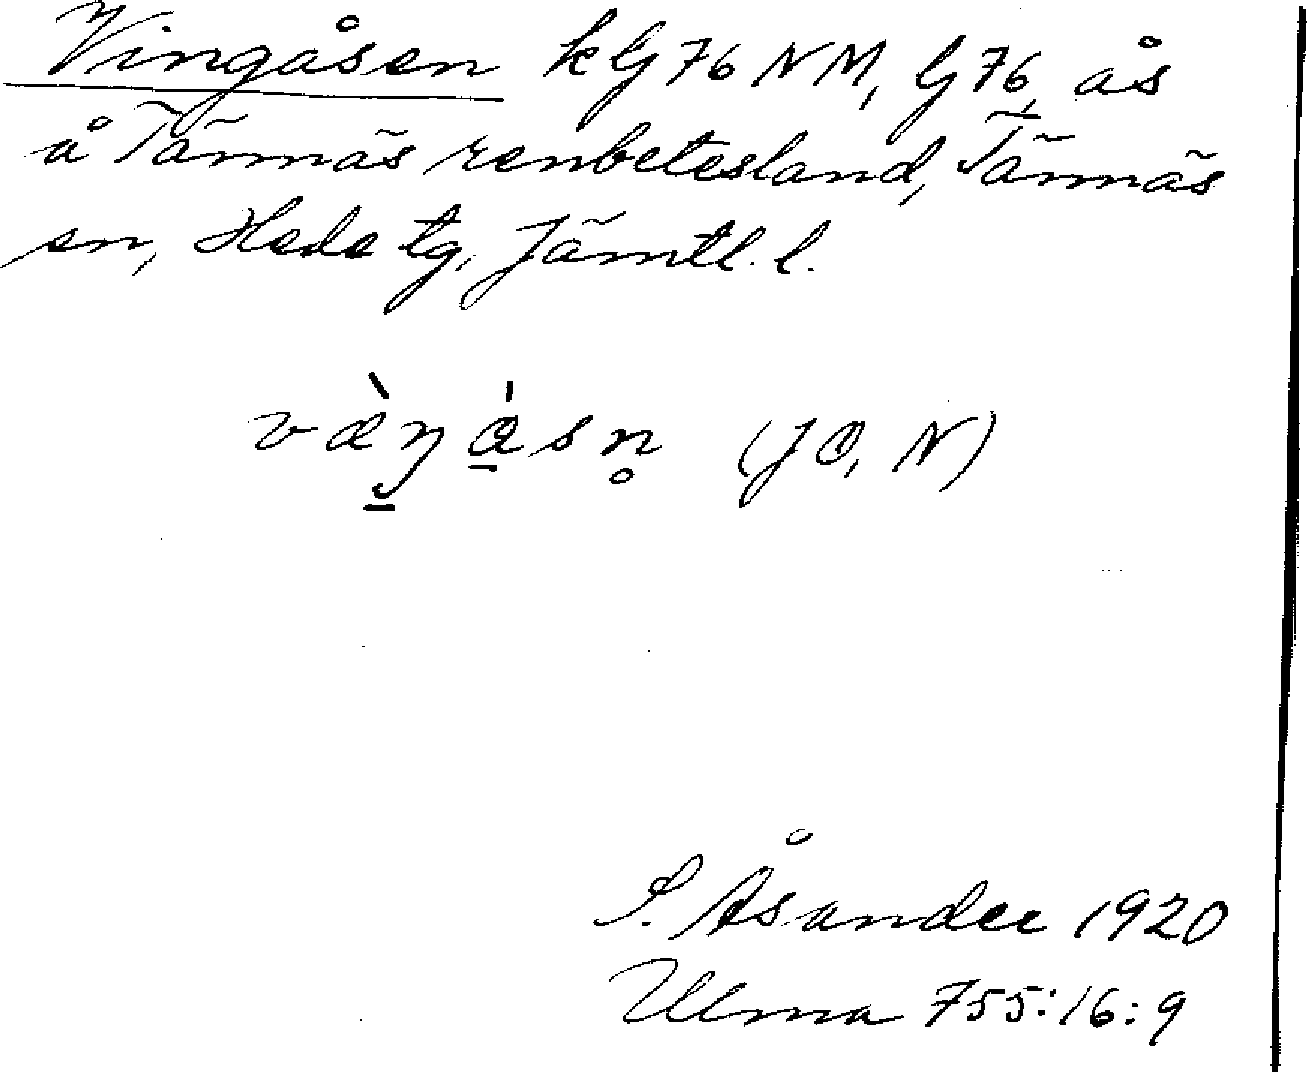 Vingåsen kG76NM, G76, ås
å Tännäs renbetesland, Tännäs
sn, Hede tg, Jämtl. l.
(JO, N)
S. Åsander 1920
Ulma 755:16:9